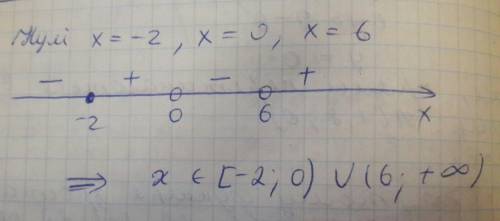 Нулі x = -2 , x = 0, x = 6
− + − +
-2 0 6 x
⇒ x ∈ [-2; 0) ∪ (6; +∞)